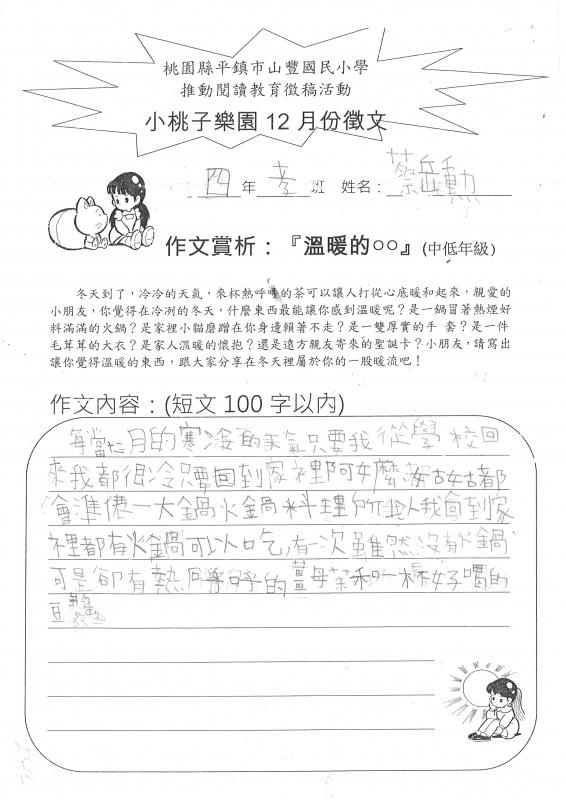 桃園縣平鎮市山豐國民小學
推動閱讀教育徵稿活動
小桃子樂園 12 月份徵文
四 年 孝 班 姓名: 蔡岳勳
作文賞析:『溫暖的○○』(中低年級)
冬天到了,冷冷的天氣,來杯熱呼嚕的茶可以讓人打從心底暖和起來,親愛的
小朋友,你覺得在冷冽的冬天,什麼東西最能讓你感到溫暖呢?是一鍋冒著熱煙好
料滿滿的火鍋?是家裡小貓磨蹭在你身邊賴著不走?是一雙厚實的手 套?是一件
毛茸茸的大衣?是家人溫暖的懷抱?還是遠方親友寄來的聖誕卡?小朋友,請寫出
讓你覺得溫暖的東西,跟大家分享在冬天裡屬於你的一股暖流吧!
作文內容:(短文 100 字以內)
每當 月的寒 的天氣只要我從學校回
來我都很冷只要回到家裡阿嬤 姑姑都
會準備一大鍋火鍋料理所以我回到家
裡都有火鍋可以吃,有一次雖然沒有火鍋
可是卻有熱呼呼的薑母茶和一杯好喝的
豆